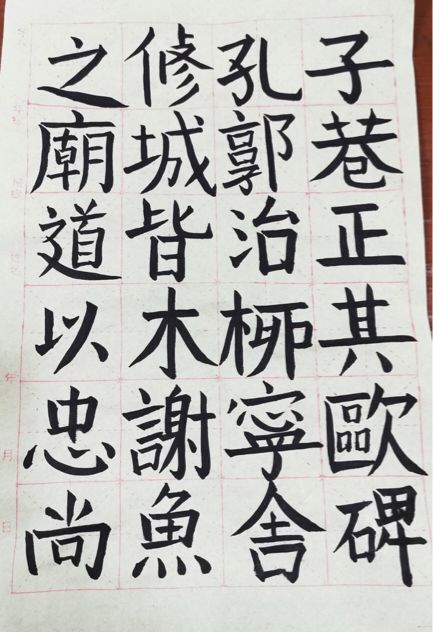 子巷正其歐碑
孔郭治柳寧舍
修城皆木謝魚
之廟道以忠尚
年月日